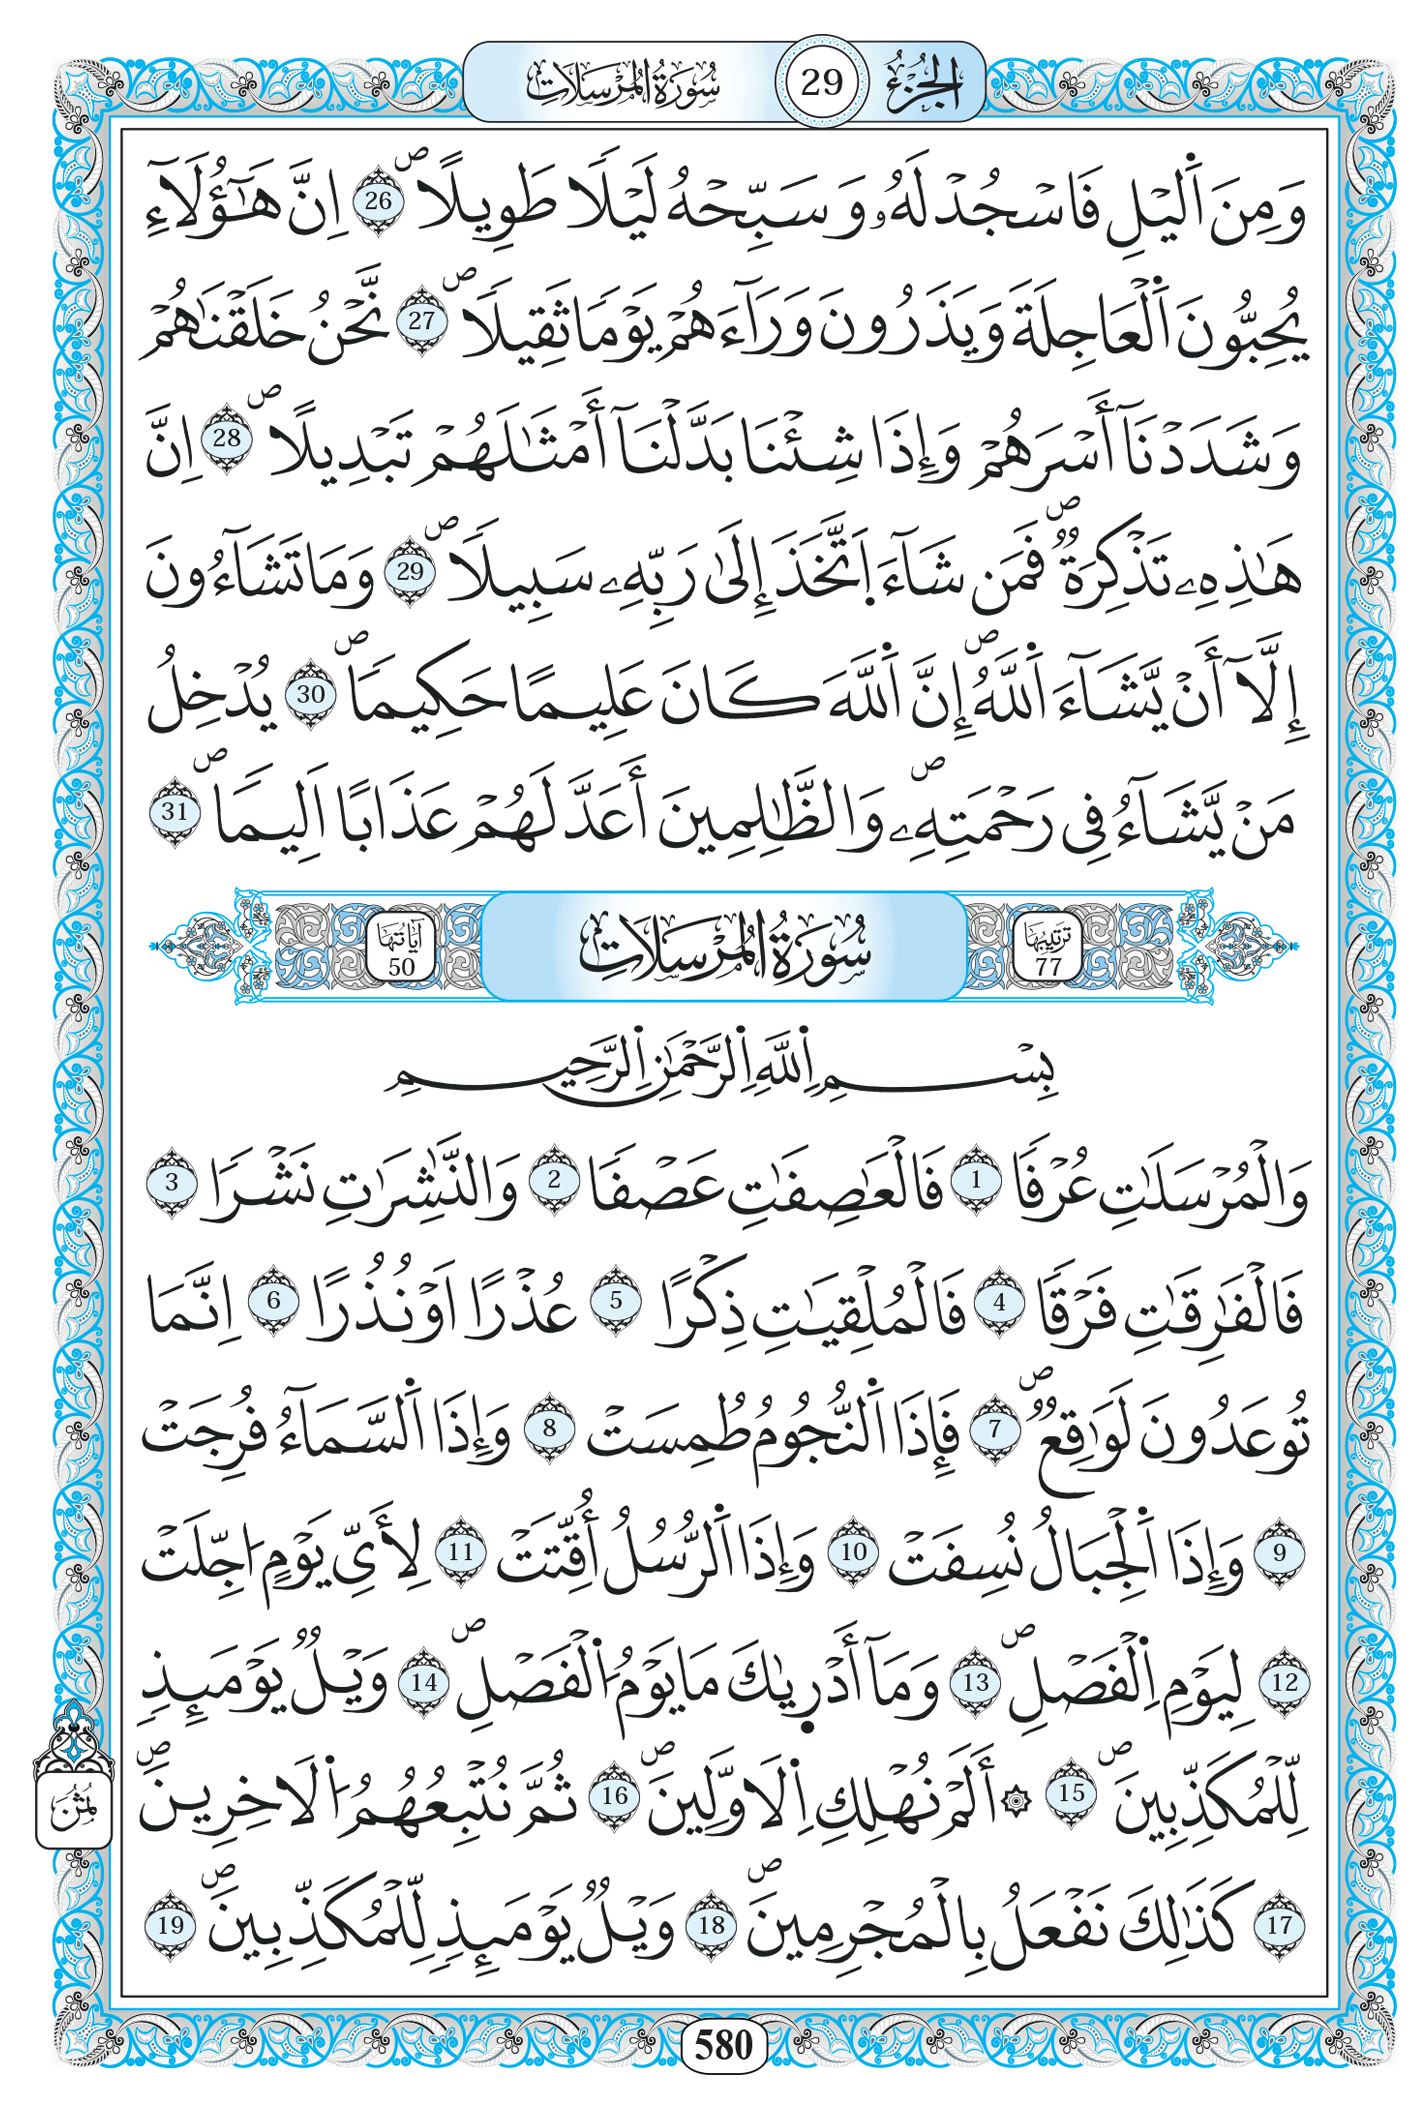 الجزء 29 سورة المرسلات
وَمِنَ اَ۬لَّيْلِ فَاسْجُدْ لَهُۥ وَسَبِّحْهُ لَيْلاٗ طَوِيلاًۖ 26 اِنَّ هَٰٓؤُلَآءِ
يُحِبُّونَ اَ۬لْعَاجِلَةَ وَيَذَرُونَ وَرَآءَهُمْ يَوْماٗ ثَقِيلاٗۖ 27 نَّحْنُ خَلَقْنَٰهُمْ
وَشَدَدْنَآ أَسْرَهُمْ وَإِذَا شِئْنَا بَدَّلْنَآ أَمْثَٰلَهُمْ تَبْدِيلاًۖ 28 اِنَّ
هَٰذِهِۦ تَذْكِرَةٞۖ فَمَن شَآءَ اَ۪تَّخَذَ إِلَىٰ رَبِّهِۦ سَبِيلاٗۖ 29 وَمَا تَشَآءُونَ
إِلَّآ أَنْ يَّشَآءَ اَ۬للَّهُۖ إِنَّ اَ۬للَّهَ كَانَ عَلِيماً حَكِيماٗۖ 30 يُدْخِلُ
مَنْ يَّشَآءُ فِي رَحْمَتِهِۦۖ وَالظَّٰلِمِينَ أَعَدَّ لَهُمْ عَذَاباً اَلِيماٗۖ 31
ترتيبها 77 سورة المرسلات آياتها 50
بِسْمِ اِ۬للَّهِ اِ۬لرَّحْمَٰنِ اِ۬لرَّحِيمِ
وَالْمُرْسَلَٰتِ عُرْفاٗ 1 فَالْعَٰصِفَٰتِ عَصْفاٗ 2 وَالنَّٰشِرَٰتِ نَشْراٗ 3
فَالْفَٰرِقَٰتِ فَرْقاٗ 4 فَالْمُلْقِيَٰتِ ذِكْراً 5 عُذْراً اَوْ نُذُراً 6 اِنَّمَا
تُوعَدُونَ لَوَٰقِعٞۖ 7 فَإِذَا اَ۬لنُّجُومُ طُمِسَتْ 8 وَإِذَا اَ۬لسَّمَآءُ فُرِجَتْ
9 وَإِذَا اَ۬لْجِبَالُ نُسِفَتْ 10 وَإِذَا اَ۬لرُّسُلُ أُقِّتَتْ 11 لِأَيِّ يَوْمٍ اُجِّلَتْ
12 لِيَوْمِ اِ۬لْفَصْلِۖ 13 وَمَآ أَدْر۪يٰكَ مَا يَوْمُ اُ۬لْفَصْلِۖ 14 وَيْلٞ يَوْمَئِذٖ
لِّلْمُكَذِّبِينَۖ 15 ۞ أَلَمْ نُهْلِكِ اِ۬لَاوَّلِينَۖ 16 ثُمَّ نُتْبِعُهُمُ اُ۬لَاخِرِينَۖ
17 كَذَٰلِكَ نَفْعَلُ بِالْمُجْرِمِينَۖ 18 وَيْلٞ يَوْمَئِذٖ لِّلْمُكَذِّبِينَۖ 19
ثُمُن
580